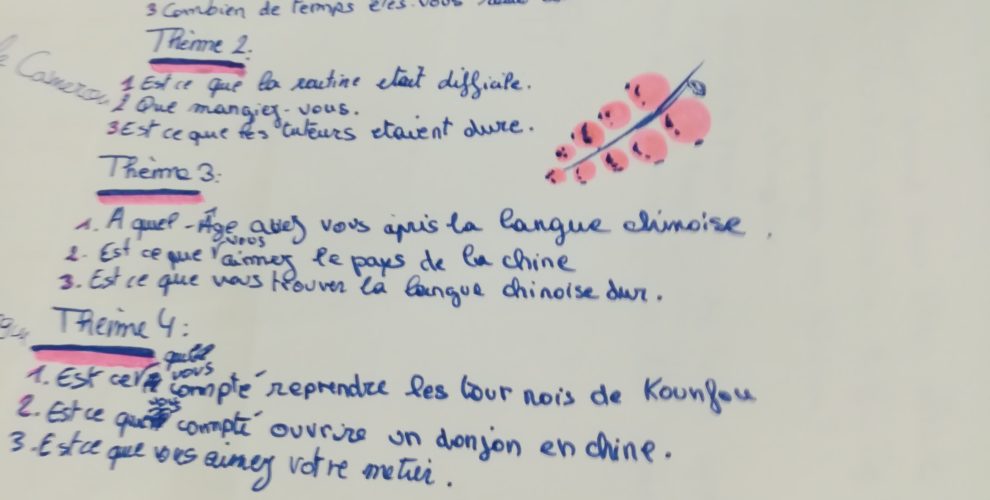 3 Combien de temps
Thème 2:
le Cameroun
1 Est ce que la routine etait difficile.
2 Que mangiez-vous.
3 Est ce que les tuteurs etaient dure.
Thème 3:
1. A quel-Âge avez vous apris la langue chinoise.
2. Est ce que vous aimez le pays de la chine
3. Est ce que vous trouver la langue chinoise dur.
Thème 4:
1. Est ce que vous compté reprendre les tour nois de Kounfou
2. Est ce que vous compté ouvrire un donjon en chine.
3. Est ce que vous aimez votre metier.